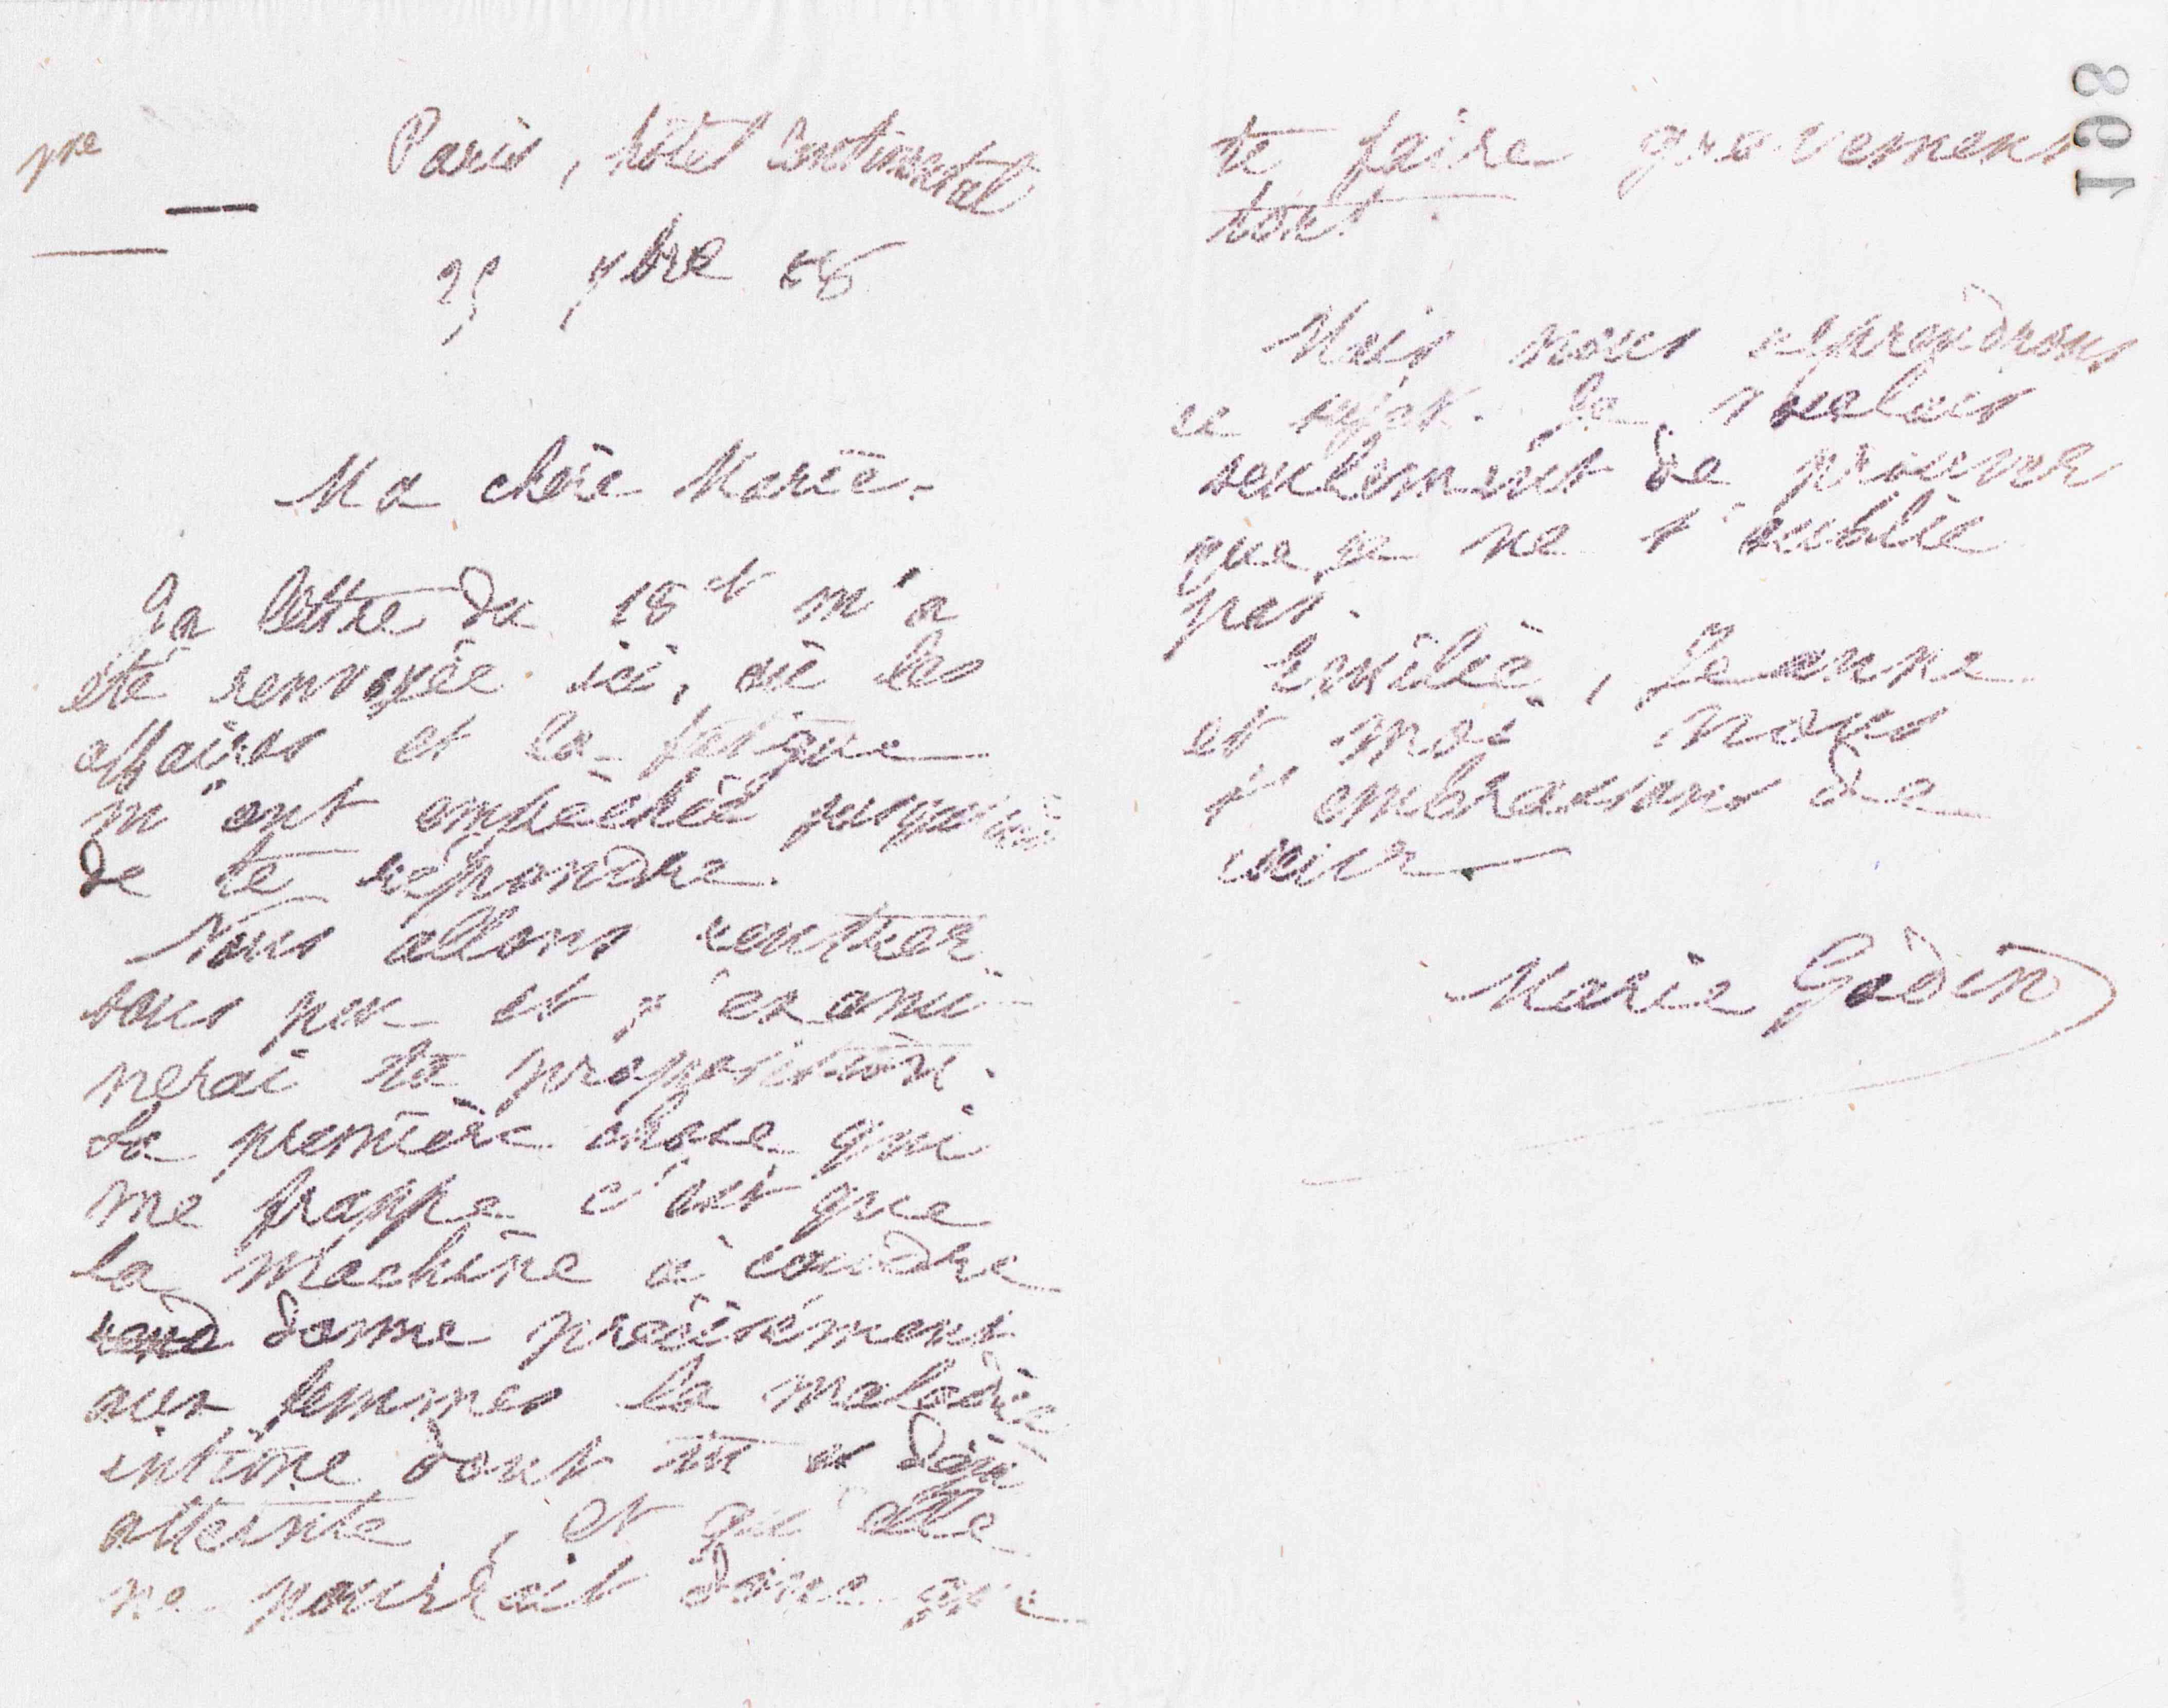 pre
Paris, hôtel Continental
25 9bre 88
Ma chère Marie.
Ta lettre du 18 ct m'a
été renvoyée ici, où les
affaires et la fatigue
m'ont empêchée jusqu'ici
de te répondre.
Nous allons rentrer
sous peu et j'exami-
nerai ta proposition.
La première chose qui
me frappe c'est que
la machine à coudre
rend donne précisément
aux femmes la maladie
intime dont tu es déjà
atteinte, et qu'elle
ne pourrait donc que
te faire gravement
tort.
Mais nous reprendrons
ce sujet. Je voulais
seulement te prouver
que je ne t'oublie
pas.
Emilie, Jeanne
et moi nous
t'embrassons de
cœur
Marie Godin
198